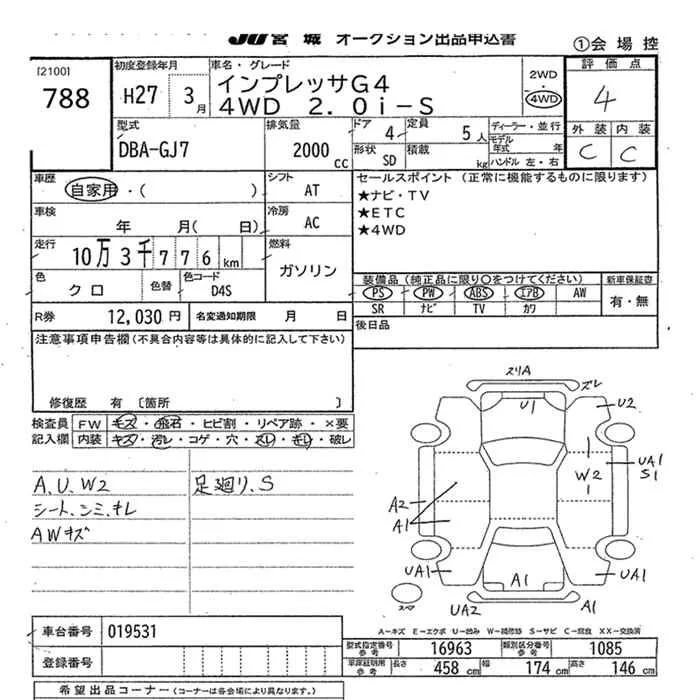 JU宮城 オークション出品申込書
①会場控
[2100]
788
初度登録年月
H27 3月
車名・グレード
インプレッサG4
4WD 2.0i-S
2WD
・
4WD
評価点
4
外装 内装
C C
型式
DBA-GJ7
排気量
2000 cc
ドア 4
定員 5人
形状 SD
積載 kg
ディーラー・並行
モデル年式 年
ハンドル 左・右
車歴
自家用・( )
シフト
AT
セールスポイント (正常に機能するものに限ります)
★ナビ・TV
★ETC
★4WD
車検
年 月( 日)
冷房
AC
走行
10万3千776km
燃料
ガソリン
色
クロ
色替
色コード
D4S
装備品 (純正品に限り○をつけてください)
新車保証書
PS PW ABS エアB AW
SR ナビ TV カワ
有・無
R券 12,030円
名変通知期限 月 日
後日品
注意事項申告欄(不具合内容等は具体的に記入して下さい)
修復歴 有 〔箇所 〕
検査員記入欄
FW キズ・飛石・ヒビ割・リペア跡・×要
内装 キズ・汚レ・コゲ・穴・スレ・キレ・破レ
A、U、W2
足廻り、S
シート、シミ、キレ
AWキズ
スリA
ズレ
U1
U2
W2
UA1
S1
A2
A1
UA1
A1
UA1
スマ
UA2
A1
A―キズ E―エクボ U―凹み W―補修跡 S―サビ C―腐食 XX―交換済
車台番号 019531
型式指定番号 参考 16963
類別区分番号 参考 1085
登録番号
車庫証明用 参考 長さ 458 cm 幅 174 cm 高さ 146 cm
希望出品コーナー (コーナーは各会場により異なります。)